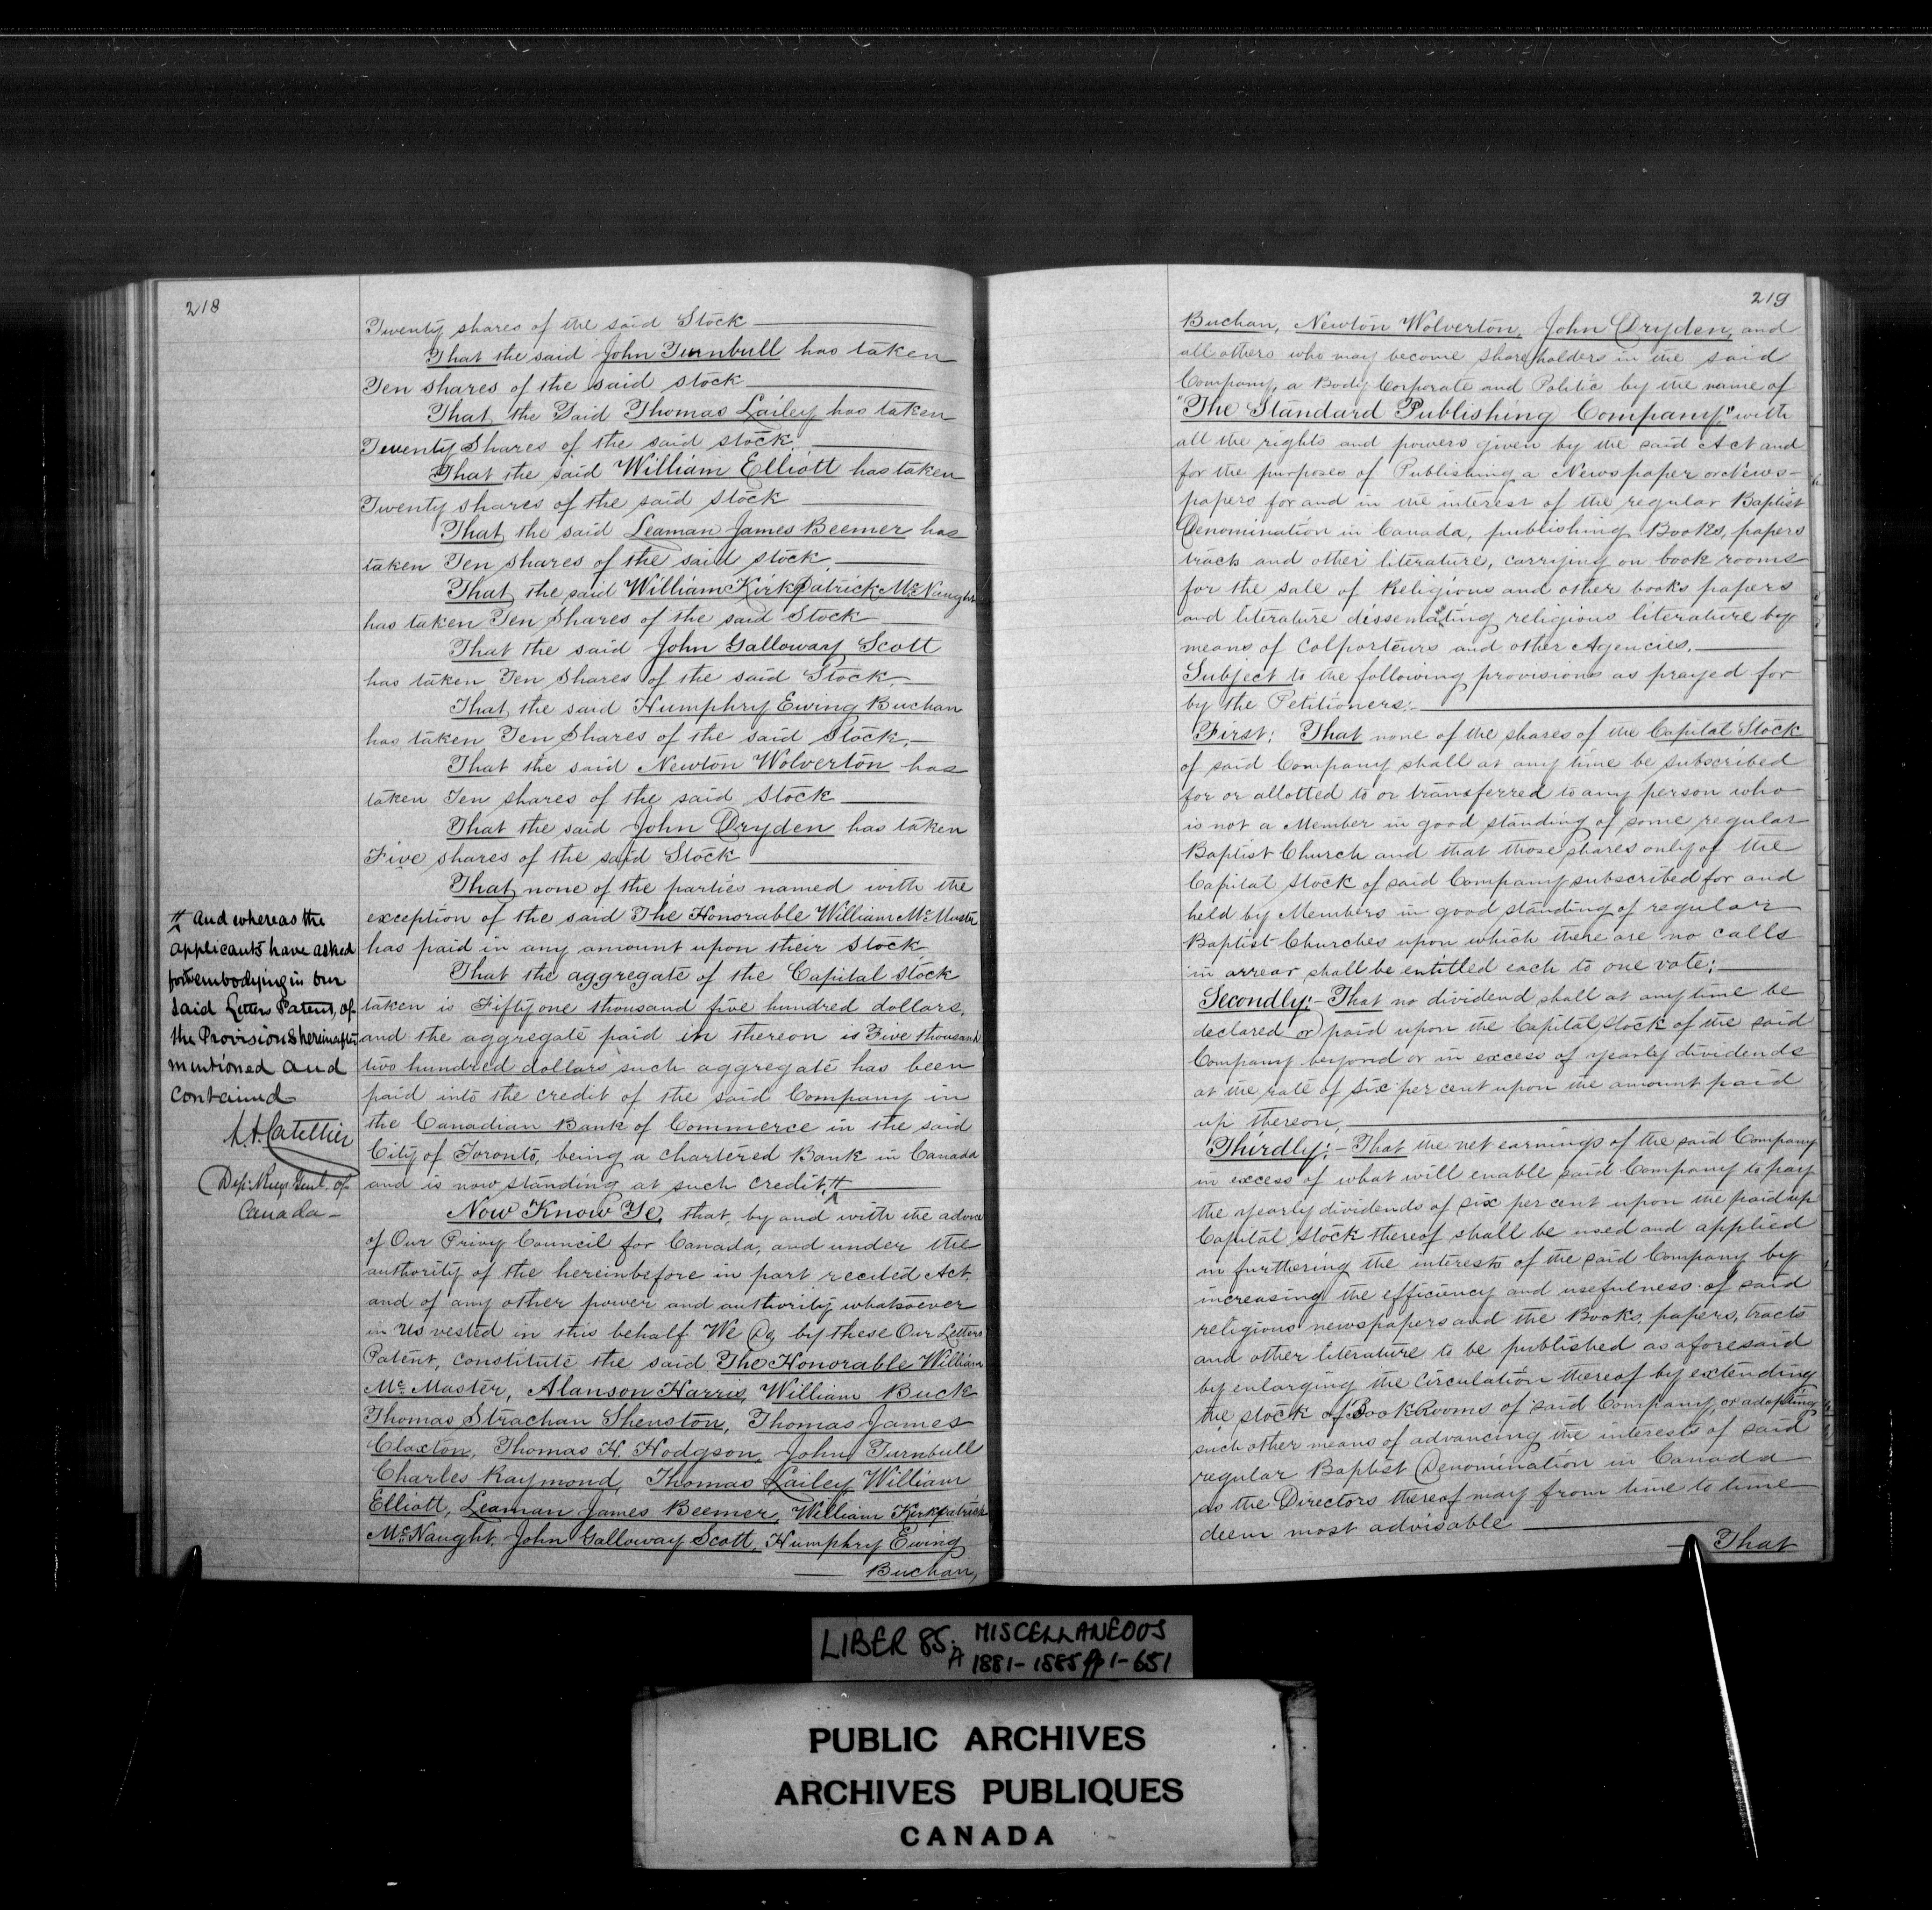 218
Twenty shares of the said Stock
That the said John Turnbull has taken
Ten shares of the said stock
That the Said Thomas Lailey has taken
Twenty Shares of the said stock
That the said William Elliott has taken
Twenty shares of the said stock
That the said Leaman James Beemer has
taken Ten shares of the said stock.
That the said William Kirkpatrick McNaught
has taken Ten Shares of the said Stock
That the said John Galloway Scott
has taken Ten Shares of the said Stock.
That the said Humphry Ewing Buchan
has taken Ten Shares of the said Stock.
That the said Newton Wolverton has
taken Ten shares of the said Stock
That the said John Dryden has taken
Five shares of the said Stock
That none of the parties named with the
exception of the said The Honorable William McMaster
has paid in any amount upon their Stock
That the aggregate of the Capital Stock
taken is Fifty one thousand five hundred dollars,
and the aggregate paid in thereon is Five thousand
two hundred dollars such aggregate has been
paid into the credit of the said Company in
the Canadian Bank of Commerce in the said
City of Toronto, being a chartered Bank in Canada
and is now standing at such credit.
Now Know Ye, that, by and with the advice
of Our Privy Council for Canada, and under the
authority of the hereinbefore in part recited Act,
and of any other power and authority whatsoever
in Us vested in this behalf We Do, by these Our Letters
Patent, constitute the said The Honorable William
McMaster, Alanson Harris, William Buck
Thomas Strachan Shenston, Thomas James
Claxton, Thomas H. Hodgson, John Turnbull
Charles Raymond, Thomas Lailey William
Elliott, Leaman James Beemer, William Kirkpatrick
McNaught, John Galloway Scott, Humphry Ewing
Buchan,
And whereas the
applicants have asked
for embodying in our
said Letters Patent, of
the Provisions hereinafter
mentioned and
contained
L.A. Catellier
Dep: Regr. Genl. of
Canada
219
Buchan, Newton Wolverton, John Dryden, and
all others who may become shareholders in the said
Company, a Body Corporate and Politic by the name of
"The Standard Publishing Company," with
all the rights and powers given by the said Act and
for the purposes of Publishing a Newspaper or News-
papers for and in the interest of the regular Baptist
Denomination in Canada, publishing Books, papers
tracts and other literature, carrying on book rooms
for the sale of Religious and other books papers
and literature disseminating religious literature by
means of Colporteurs and other Agencies.
Subject to the following provisions as prayed for
by the Petitioners:
First: That none of the shares of the Capital Stock
of said Company shall at any time be subscribed
for or allotted to or transferred to any person who
is not a Member in good standing of some regular
Baptist Church and that those shares only of the
Capital Stock of said Company subscribed for and
held by Members in good standing of regular
Baptist Churches upon which there are no calls
in arrear shall be entitled each to one vote;
Secondly:- That no dividend shall at any time be
declared or paid upon the Capital Stock of the said
Company beyond or in excess of yearly dividends
at the rate of six per cent upon the amount paid
up thereon,
Thirdly:- That the net earnings of the said Company
in excess of what will enable said Company to pay
the yearly dividends of six per cent upon the paid up
Capital Stock thereof shall be used and applied
in furthering the interests of the said Company by
increasing the efficiency and usefulness of said
religious newspapers and the Books, papers, tracts
and other literature to be published as aforesaid
by enlarging the Circulation thereof by extending
the stock of Book Rooms of said Company or adopting
such other means of advancing the interests of said
regular Baptist Denomination in Canada
as the Directors thereof may from time to time
deem most advisable
That
LIBER 85. MISCELLANEOUS
A 1881-1885 pp 1-651
PUBLIC ARCHIVES
ARCHIVES PUBLIQUES
CANADA